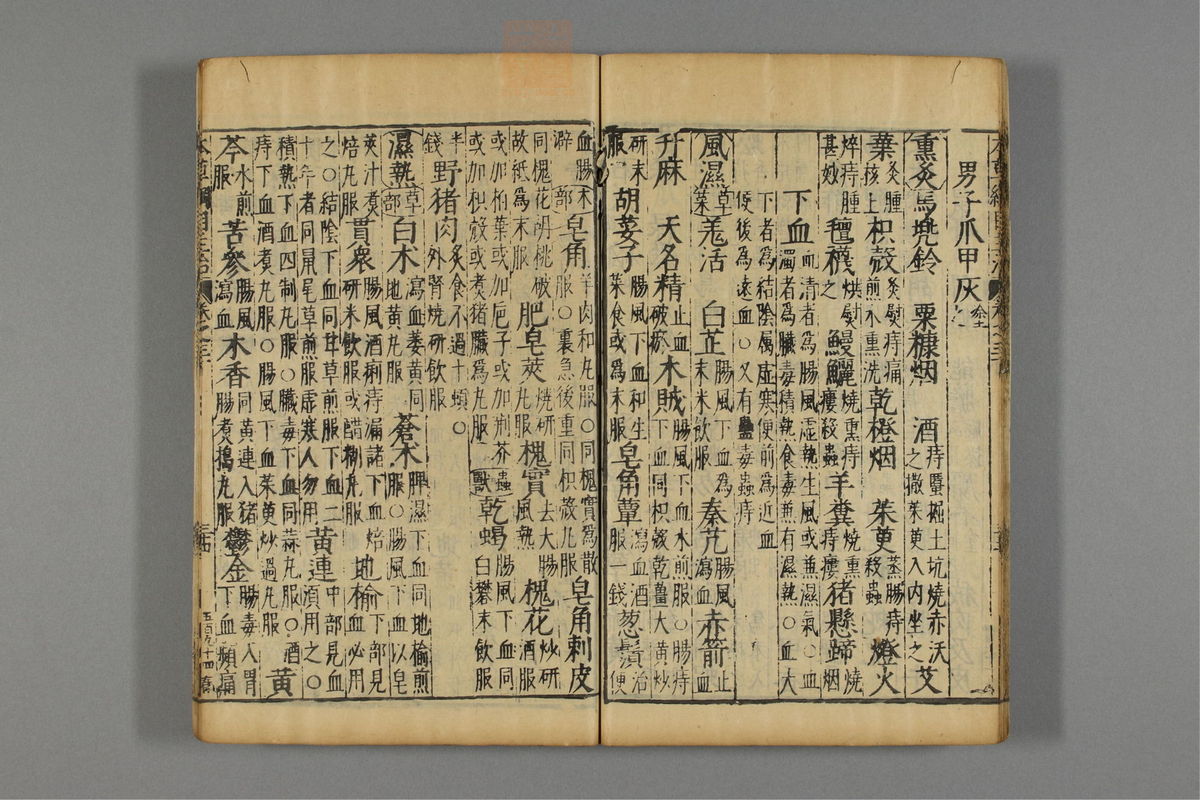 男子爪甲灰塗之
熏灸馬兜鈴 粟糠烟 酒痔䘌掘土坑燒赤沃之撒茱萸入内坐之艾
葉灸腫核上枳殼灸熨痔痛煎水熏洗乾橙烟 茱萸蒸腸痔殺蟲燈火
焠痔腫甚妙 氊襪烘熨之 鰻鱺燒熏痔瘻殺蟲羊糞燒熏痔瘻猪懸蹄燒烟
下血血清者為腸風虛熱生風或兼濕氣○血濁者為臟毒積熱食毒兼有濕熱○血大
下者為結陰属虛寒便前為近血便後為遠血○又有蠱毒蟲痔
風濕草菜羗活 白芷腸風下血為末米飲服 秦艽腸風瀉血赤箭止血
升麻 天名精止血破瘀木賊腸風下血水煎服○腸痔下血同枳殼乾薑大黄炒
研末服 胡荽子腸風下血和生菜食或為末服皂角蕈瀉血酒服一錢葱鬚治便
血腸木部皂角羊肉和丸服○同槐實為散服○裏急後重同枳殼丸服皂角刺皮
同槐花胡桃破故紙爲末服 肥皂莢燒研丸服槐實去大腸風熱 槐花炒研酒服
或加柏葉或加巵子或加荆芥或加枳殼或煮猪臟爲丸服 蟲獸乾蝎腸風下血同白礬末飲服
半錢野猪肉炙食不過十頓○外腎燒研飲服
濕熱草部白术瀉血萎黄同地黄丸服 蒼术脾濕下血同地榆煎服○腸風下血以皂
莢汁煮焙丸服貫衆腸風酒痢痔漏諸下血焙研米飲服或醋糊丸服 地榆下部見血必用
之○結陰下血同甘草煎服下血二十年者同鼠尾草煎服虛寒人勿用黄連中部見血湏用之○
積熱下血四制丸服○臟毒下血同蒜丸服○酒痔下血酒煮丸服○腸風下血茱萸炒過丸服 黄
芩水煎服 苦參腸風瀉血木香同黄連入猪腸煮搗丸服鬱金腸毒入胃下血頻痛